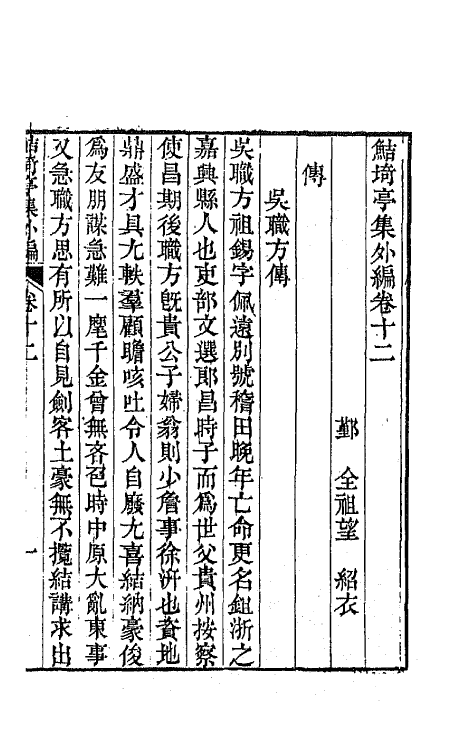 鮚埼亭集外編卷十二
鄞　全祖望　紹衣
傳
吳職方傳
吳職方祖錫字佩遠別號稽田晚年亡命更名鉏浙之
嘉興縣人也吏部文選郎昌時子而爲世父貴州按察
使昌期後職方旣貴公子婦翁則少詹事徐汧也資地
鼎盛才具尤軼羣顧瞻咳吐令人自廢尤喜結納豪俊
爲友朋謀急難一麾千金曾無吝色時中原大亂東事
又急職方思有所以自見劍客土豪無不攬結講求出
鮚埼亭集外編　卷十二　一